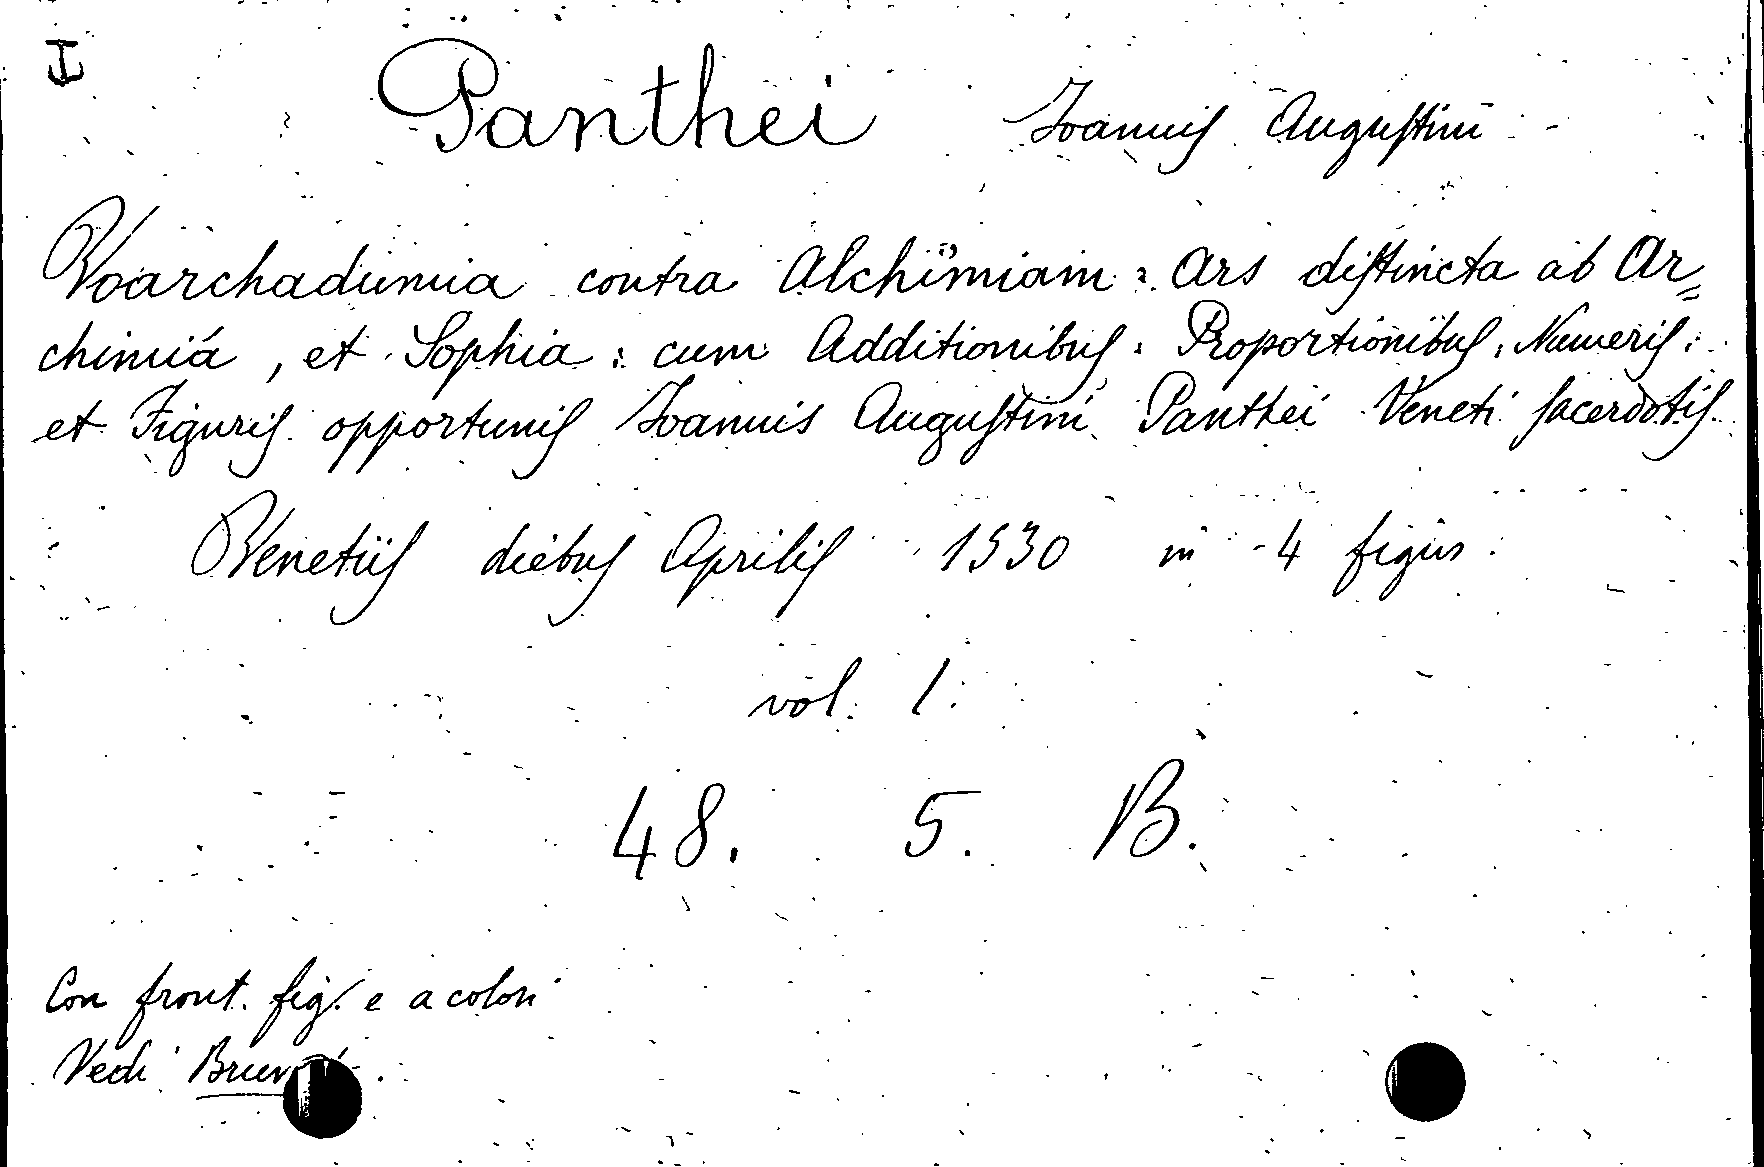 Panthei Joannis Augustini
Voarchadumia contra Alchimiam: Ars distincta ab Ar=
chimiá, et Sophia: cum Additionibus: Proportionibus: Numeris:
et Figuris opportunis Joannis Augustini Panthei Veneti sacerdotis
Venetiis diebus Aprilis 1530 in 4 figur.
vol. 1.
48. 5. B.
Con front. fig. e a colori
Vedi